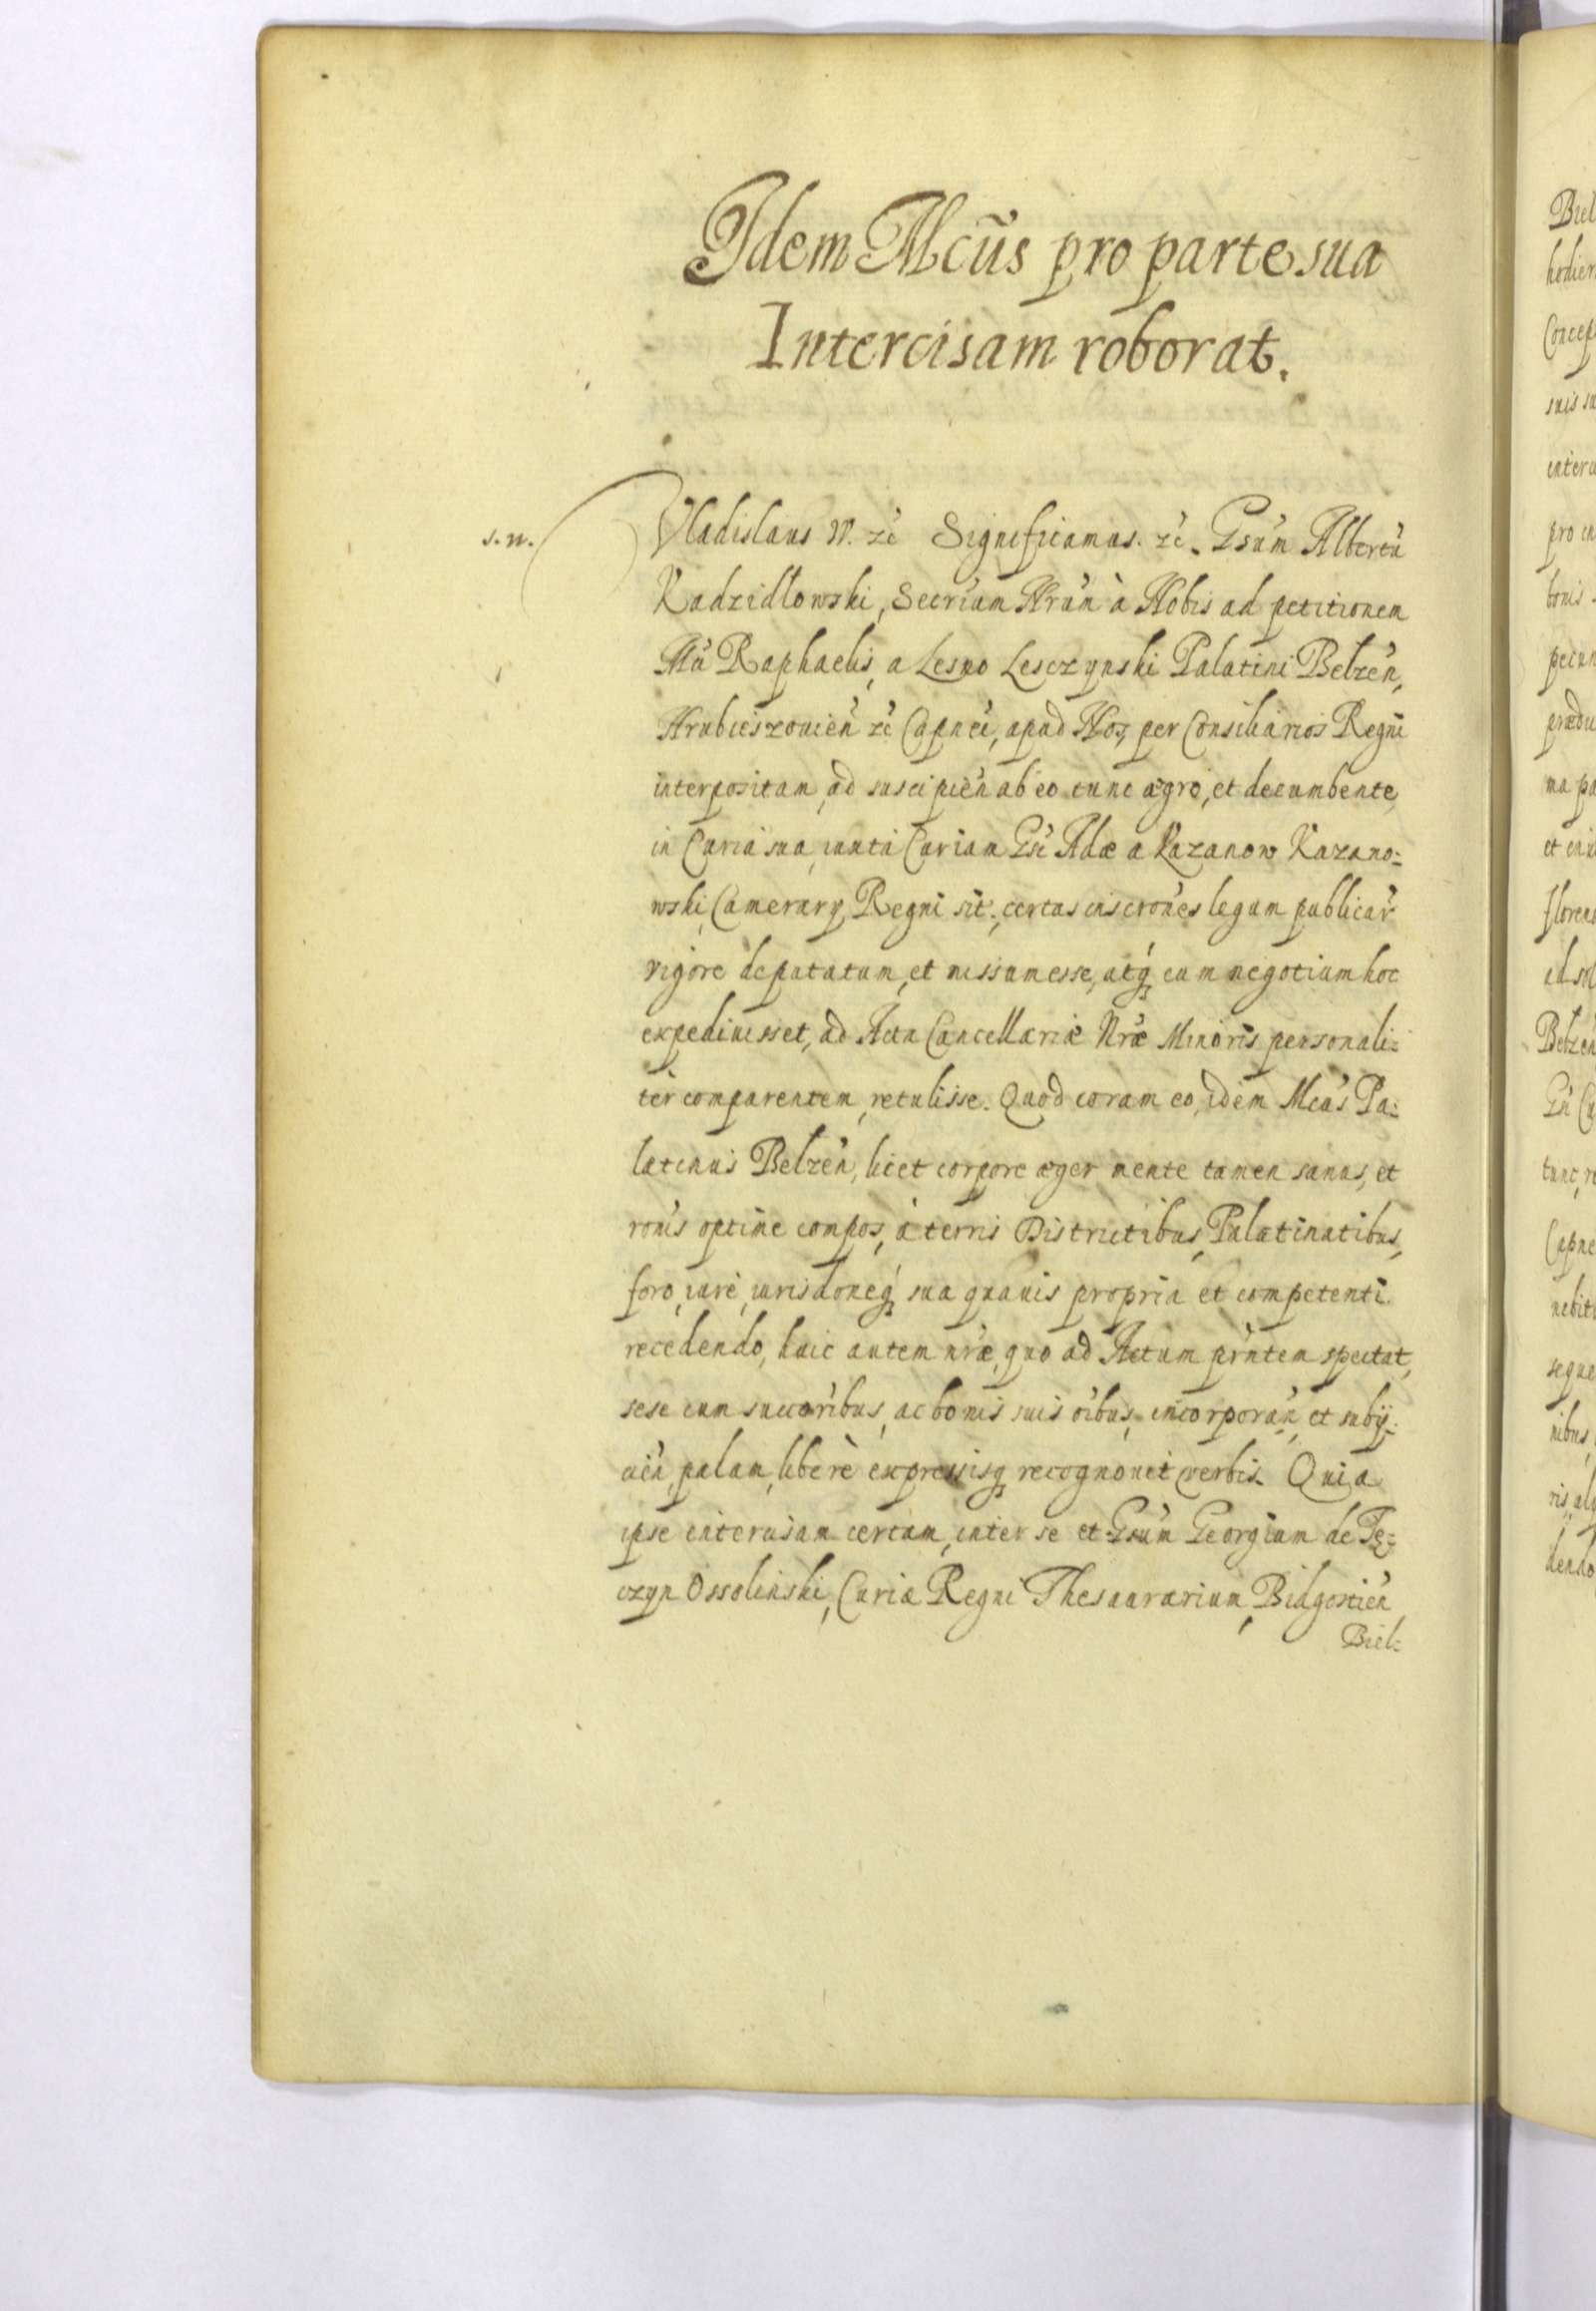 Idem Mcūs pro parte sua
Intercisam roborat.
s. n.
Vladislaus IV. zc̃ Significamus. zc̃. Gsũm Albertũ
Kadzidłowski, Secrĩum Nrũm à Nobis ad petitionem
Mcĩ Raphaelis, a Lesno Lesczynski Palatini Belzeñ,
Hrubieszovieñ zc̃ Capnei, apud Nos, per Consiliarios Regni
interpositam, ad suscipieñ ab eo tunc ægro, et decumbente,
in Curia sua, iuxta Curiam Gsi Adæ a Kazanow Kazano=
wski, Camerary Regni sit:, certas inscrõnes legum publicar̃
vigore deputatum, et missum esse, atq́ cum negotium hoc
expedivisset, ad Acta Cancellariæ Nræ Minoris personali=
ter comparentem, retulisse. Quod coram eo, idem Mcus Pa=
latinus Belzeñ, licet corpore æger mente tamen sanus, et
rõnis optime compos, à terris Districtibus, Palatinatibus,
foro, iure, iurisdõneq́ sua quavis propria et competenti
recedendo, huic autem nræ, quo ad Actum prñtem spectat,
sese cum succõribus, ac bonis suis õibus, incorporañ, et subij=
cieñ, palam, liberè expressisq́ recognovit verbis. Quia
ipse intercisam certam, inter se et Gsũm Georgium de Tę=
czyn Ossolinski, Curiæ Regni Thesaurarium, Bidgostieñ,
Biel=
Biel
hodier
Concep
suis su
interc
pro in
bonis
pecun
prædu
ma pa
et iux
floren
id sol
Belzeñ
Gsi Cu
tunc, r
Capne
nebit
seque
nibus,
ris, al
dendo